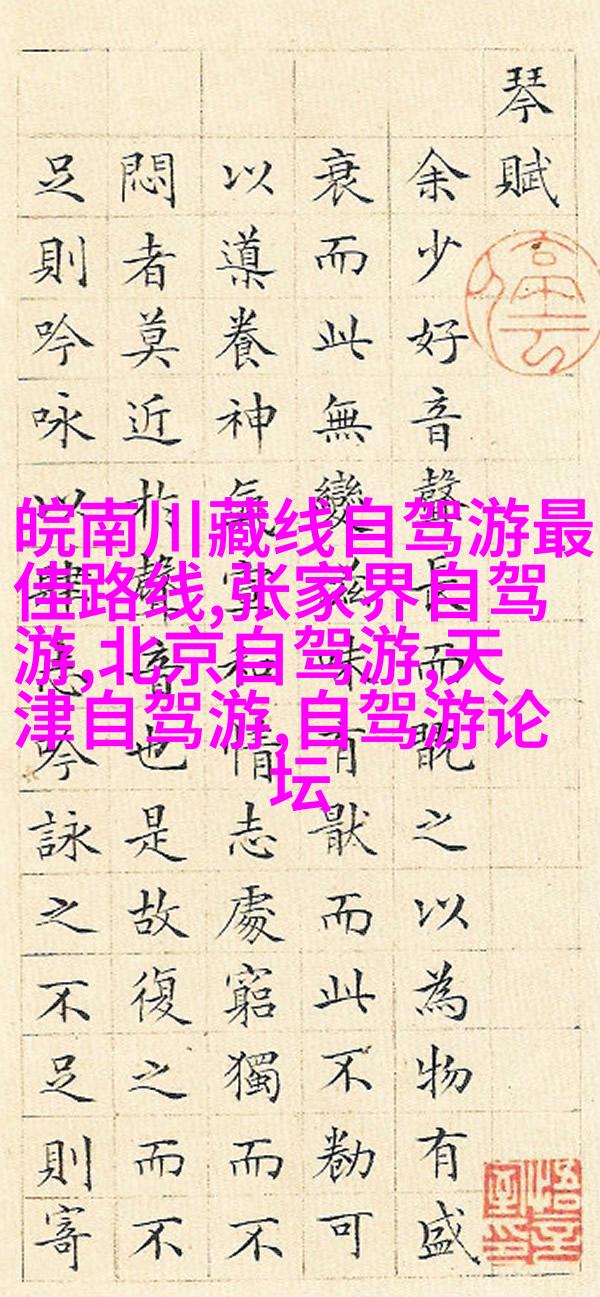 琴賦
余少好音聲長而翫之以為物有盛
衰而此無變滋味有猒而此不勌可
以導養神氣宣和情志處窮獨而不
悶者莫近於聲音也是故復之而不
足則吟咏以肆志吟詠之不足則寄
皖南川藏线自驾游最
佳路线,张家界自驾
游,北京自驾游,天
津自驾游,自驾游论
坛